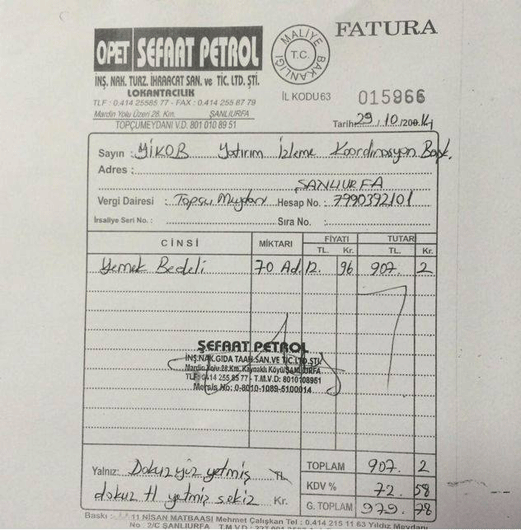 FATURA
OPET ŞEFAAT PETROL
İNŞ. NAK. TURZ. İHRAACAT SAN. ve TİC. LTD. ŞTİ.
LOKANTACILIK
TLF : 0.414 25585 77 - FAX : 0.414 255 87 79
Mardin Yolu Üzeri 28. Km. ŞANLIURFA
TOPÇUMEYDANI V.D. 801 010 89 51
MALİYE BAKANLIĞI
T.C.
İL KODU 63
015966
Tarih: 29 / 10 / 2014
Sayın : YİKOB Yatırım İzleme Koordinasyon Başk.
Adres :
ŞANLIURFA
Vergi Dairesi : Topçu Meydanı Hesap No. : 7990392101
İrsaliye Seri No. : Sıra No. :
CİNSİ MİKTARI FİYATI TUTARI
TL. Kr. TL. Kr.
Yemek Bedeli 70 Ad. 12. 96 907. 2
ŞEFAAT PETROL
İNŞ.NAK.GIDA TAAH.SAN.VE TİC.LTD.ŞTİ.
Mardin Yolu 28.Km. Kaynaklı Köyü/ŞANLIURFA
TLF: 0414 255 85 77 - T.M.V.D: 8010108951
Mersis No: 0-8010-1089-5100014
TOPLAM 907. 2
KDV % 72. 58
G. TOPLAM 979. 78
Yalnız: Dokuz yüz yetmiş TL
dokuz tl yetmiş sekiz Kr.
Baskı : 11 NİSAN MATBAASI Mehmet Çalışkan Tel : 0.414 215 11 63 Yıldız Meydanı
No: 2/C ŞANLIURFA